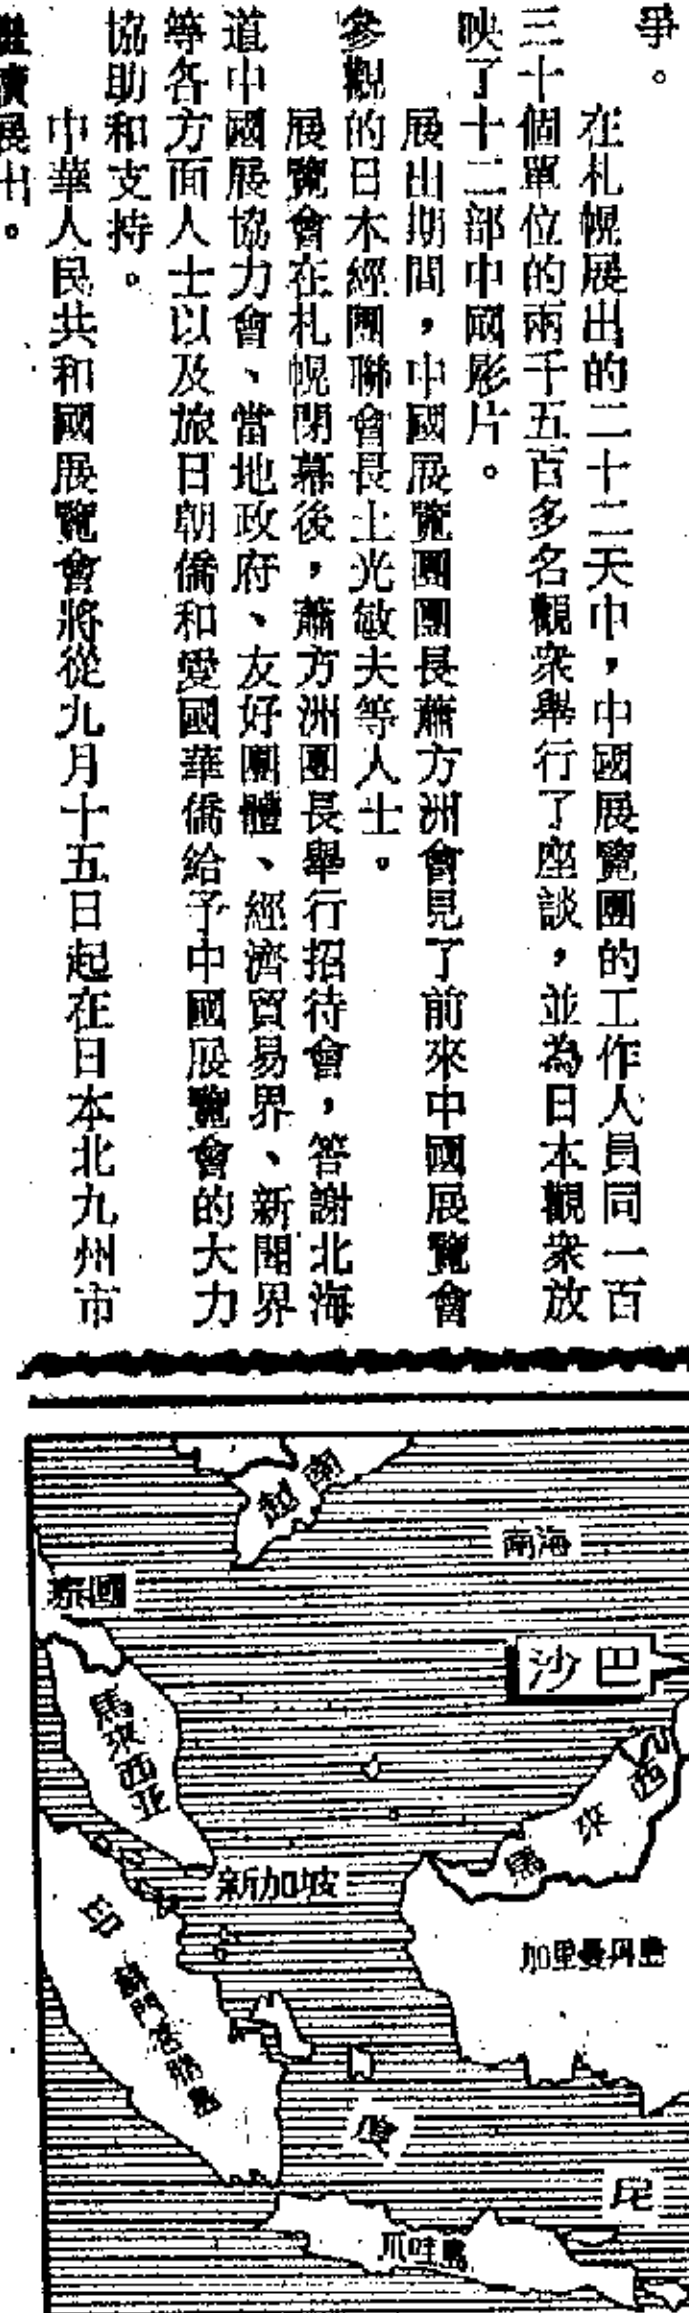 爭。
在札幌展出的二十二天中，中國展覽團的工作人員同一百
三十個單位的兩千五百多名觀衆舉行了座談，並為日本觀衆放
映了十二部中國影片。
展出期間，中國展覽團團長蕭方洲會見了前來中國展覽會
參觀的日本經團聯會長土光敏夫等人士。
展覽會在札幌閉幕後，蕭方洲團長舉行招待會，答謝北海
道中國展協力會、當地政府、友好團體、經濟貿易界、新聞界
等各方面人士以及旅日朝僑和愛國華僑給予中國展覽會的大力
協助和支持。
中華人民共和國展覽會將從九月十五日起在日本北九州市
繼續展出。
南越
南海
泰國
沙巴
馬來西亞
馬來西
新加坡
加里曼丹島
印
蘇門答臘島
度
尼
爪哇島